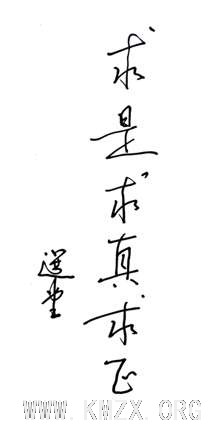 求是求真求正
選堂
WWW.KMZX.ORG